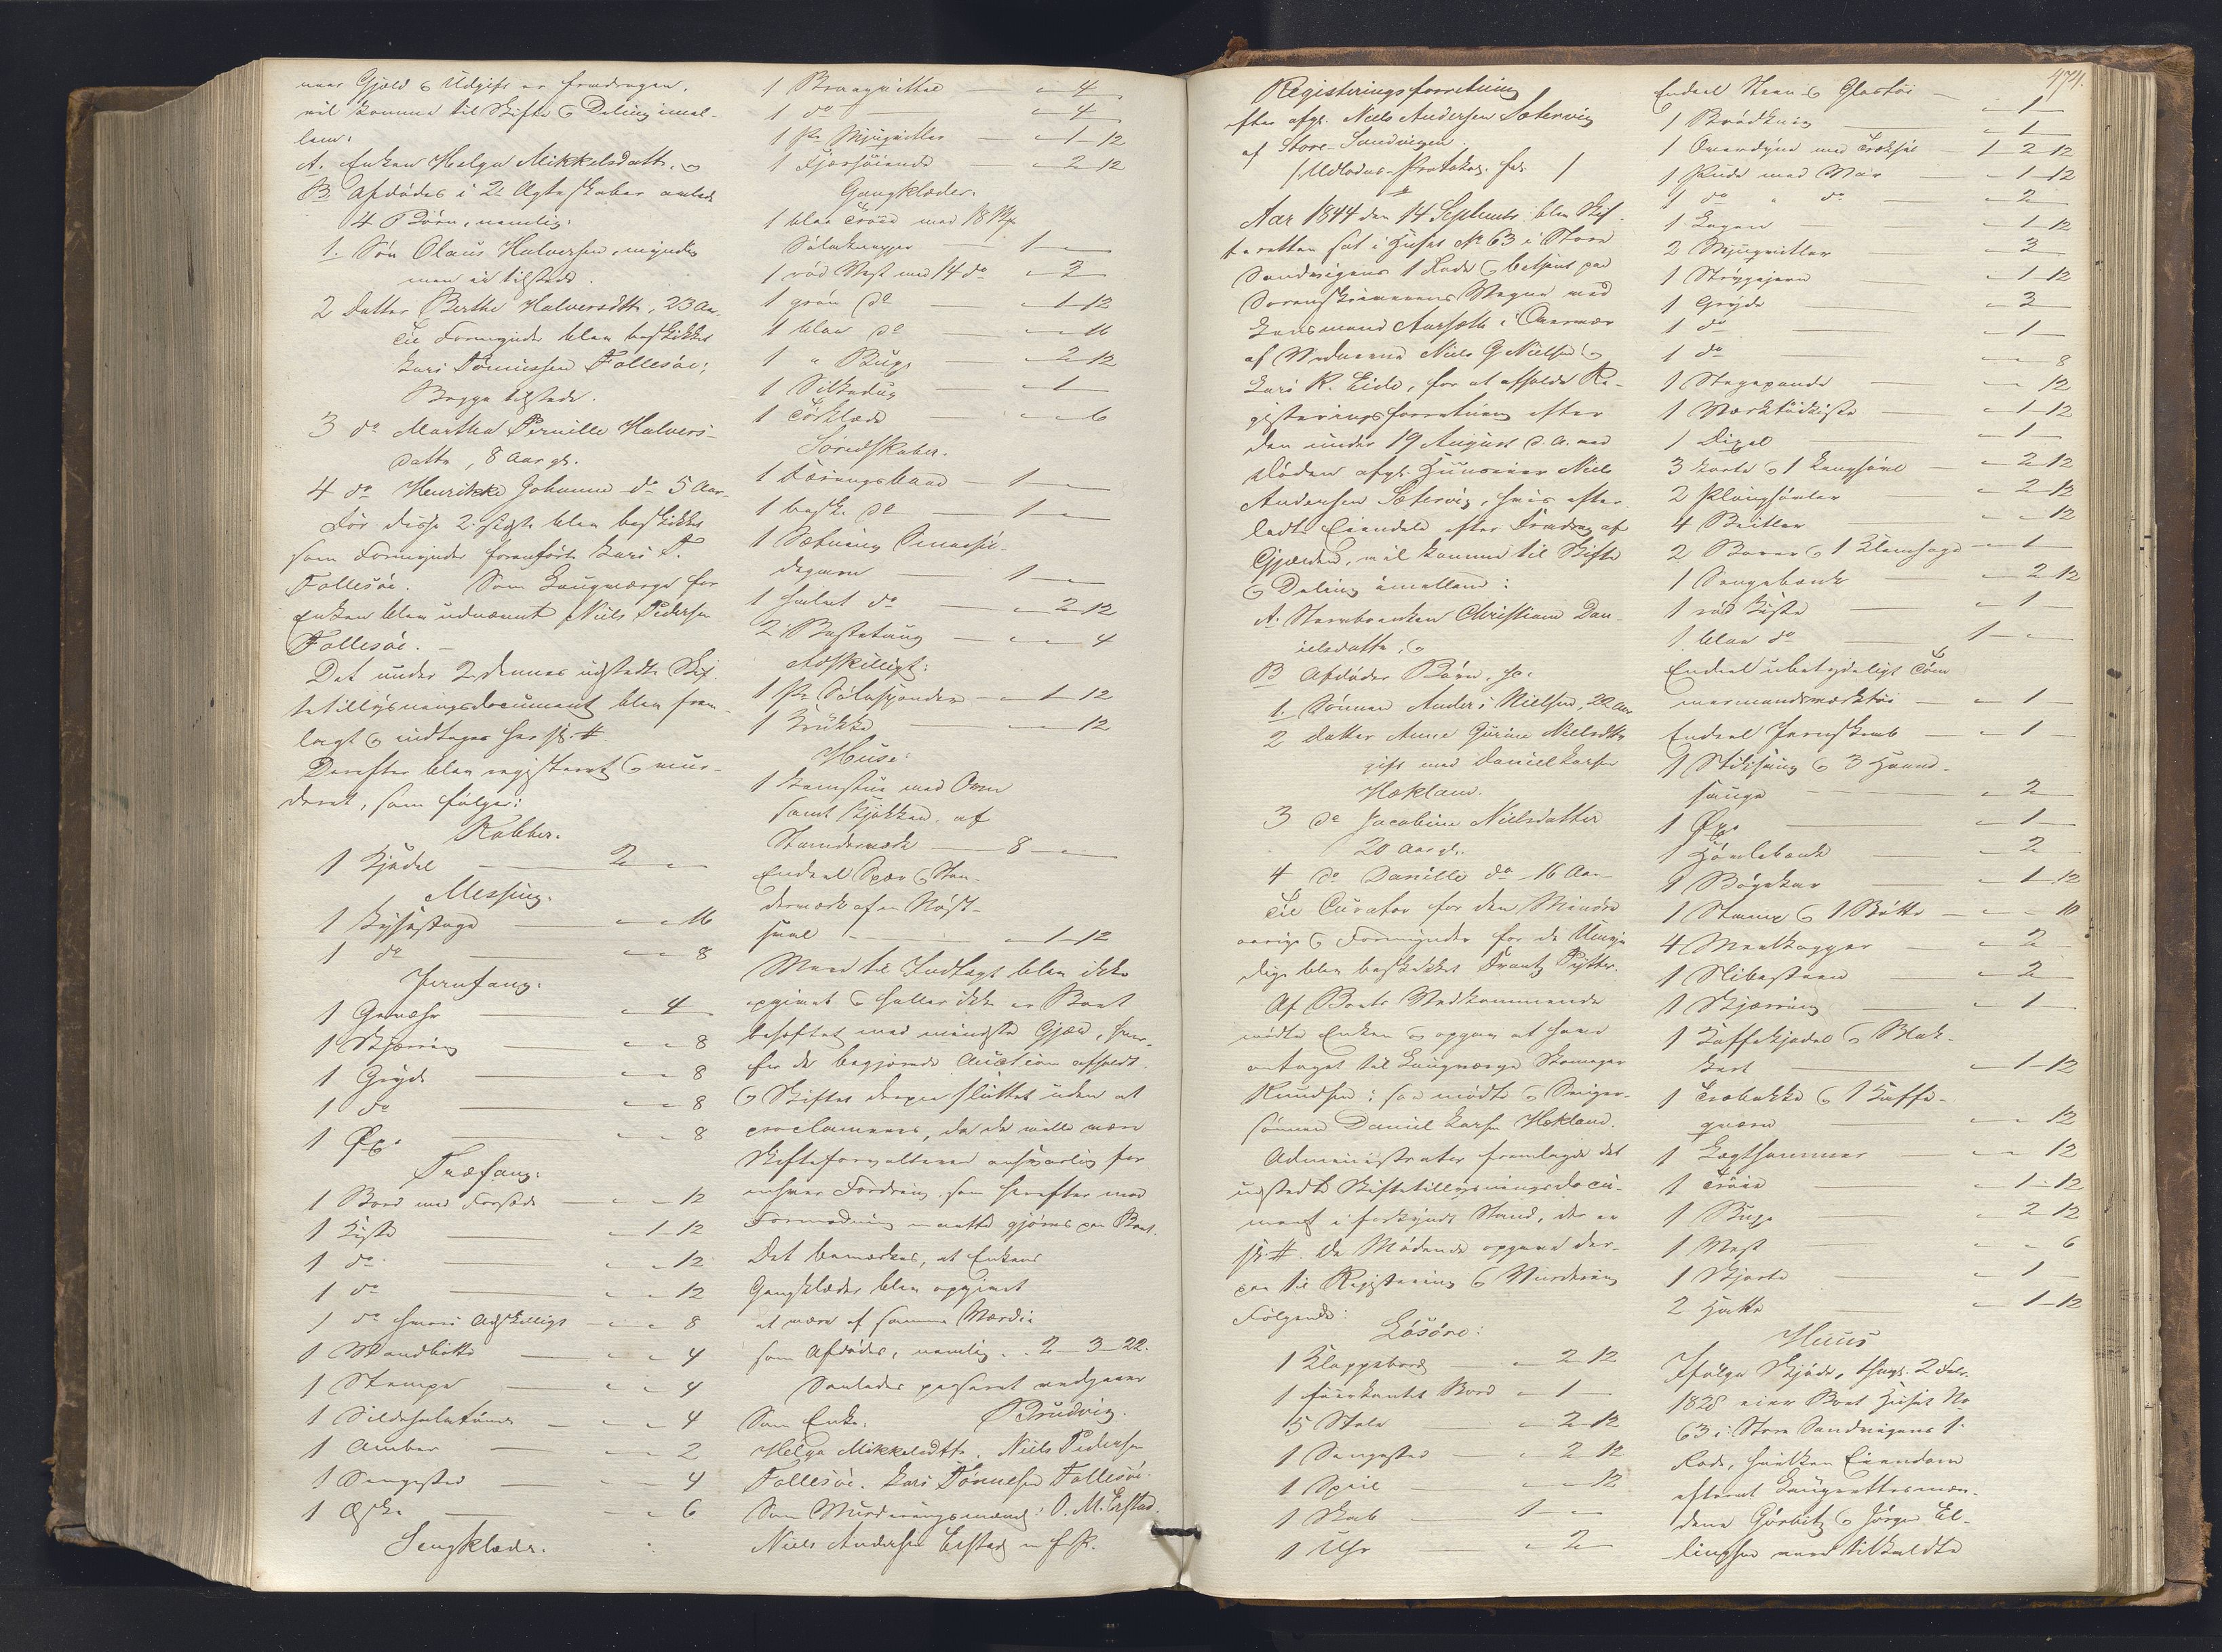 naar Gjæld & Udgift er fradragen,
vil komme til Skifte & Deling imel-
lem:
A. Enken Helga Mikkelsdatter, &
B Afdødes i 2 Ægteskaber avlede
4 Børn, nemlig:
1. Søn Olaus Halvorsen, myndig
men ei tilstede.
2 Datter Berthe Halversdtr, 23 Aar,
Til Formynder blev beskikket
Lars Tønnessen Follesøe;
Begge tilstede.
3 do Martha Pernille Halvers-
datter, 8 Aar gl.
4 do Henrikke Johanna do 5 Aar.
For disse 2 sidste blev beskikket
som Formynder foranførte Lars T.
Follesøe. Som Laugværge for
Enken blev udnævnt Niels Pedersen
Follesøe.
Det under 2 dennes udstedte Skif-
tetillysningsdocument blev frem-
lagt & indtages her sk. #.
Derefter blev registeret & vur-
deret, som følger:
Kobber.
1 Kjedel 2 - -
Messing.
1 Lysestage - - 16
1 do - - 8
Jernfang.
1 Geværh - 4 -
1 - - 8
1 Gryde - - 8
1 do - - 8
1 Øxe - - 8
Træfang:
1 Bord med - - 12
1 Kiste - 1 - 12
1 do - - 12
1 do - - 12
1 do hvori Adskilligt - - 8
1 Vandbøtte - - 4
1 Stampe - - 4
1 - - 4
1 Amber - - 2
1 Sengested - - 4
1 Æske - - 6
Sengklæder.
1 - 4 -
1 do - 4 -
1 Pr - 1 - 12
1 - 2 - 12
Gangklæder.
1 blaa Trøie med 18 Stk
Sølvknapper 1 - -
1 rød Vest med 14 do - 3 -
1 grøn do - 1 - 12
1 blaa do - - 16
1 " Buxe - 2 - 12
1 Silkedug - 1 -
1 Tørklæde - - 6
Søredskaber.
1 Færingsbaad 1 - -
1 do 1 - -
1 Sætning
1 - -
1 halvt do - 2 - 12
2 - - 4
Adskilligt:
1 Pr Sølvspænder - 1 - 12
1 Krukke - - 12
Huse:
1 med Ovn
samt Kjøkken, af
8 - -
Endeel Spær &
af en Nøst-
- 1 - 12
Meer til Indtægt blev ikke
opgivet & heller ikke er Boet
behæftet med mindste Gjæld, hvor-
for de begjærede Auction afholdt
& Skiftet derpaa sluttet uden at
proclameres, da de vilde være
Skifteforvalteren ansvarlig for
enhver Fordring, som herefter mod
Formodning maatte gjøres paa Boet.
Det bemærkes, at Enkens
Gangklæder blev opgivet
at være af samme Værdie
som Afdødes, nemlig. . 2 - 3 - 22.
Saaledes passeret
Som Enke:
Helga Mikkelsdtr. Niels Pedersen
Follesøe. Lars Tønnesen Follesøe.
Som Vurderingsmænd: O. M. Erstad.
Niels Andersen Erstad m f P.
474.
Registeringsforretning
efter afg. Niels Andersen Sætervig
af Store-Sandvigen.
Aar 1844 den 14 September blev Skif-
teretten sat i Huset No 63 i Store
Sandvigens 1 Rode & betjent paa
Sorenskriverens Vegne ved
Lensmand Aarseth i Overvær
af Vidnerne Niels G Nielsen &
Lars R. Eide, for at afholde Re-
gisteringsforretning efter
den under 19 August d. A. ved
Døden afg. Huuseier Niels
Andersen Sætervig, hvis efter-
ladte Eiendele efter Fradrag af
Gjælden, vil komme til Skifte
& Deling imellem:
A. Stervboenken Christiane Dan-
ielsdatter, &
B Afdødes Børn,
1. Sønnen Anders Nielsen, 22 Aar
2 Datter Anne Gurine Nielsdtr
gift med Daniel Larsen
Hekland.
3 do Jacobine Nielsdatter
20 Aar gl.
4 do Danille do 16 Aar
Til Curator for den Mindre-
aarige & Formynder for de Umyn-
dige blev beskikket Frantz Pytter.
Af Boets Vedkommende
mødte Enken & opgav at have
antaget til Laugværge Skomager
Knudsen; saa mødte & Sviger-
sønnen Daniel Larsen Hekland.
Administrator fremlagde det
udstedte Skiftetillysningsdocu-
ment i forkyndt Stand, der er
sk. #. De Mødende opgave der-
paa til Registering & Vurdering
Følgende:
Løsøre:
1 Klappebord - 2 - 12
1 fiirkantet Bord - 1 -
5 Stole - 2 - 12
1 Sengested - 2 - 12
1 Speil - - 12
1 Skab 1 - -
1 Uhr - 2 -
Endeel Steen & Glastøi - 1 -
1 Brødkniv - 1 -
1 Overdyne med 1 - 2 - 12
1 Pude med Var - 1 - 12
1 do " do - 2 -
1 Lagen - 1 - 12
2 - 3 -
1 Strygejern - 1 - 12
1 Gryde - 3 -
1 do - 1 -
1 do - - 8
1 Stegepande - - 12
1 Værktøikiste - 1 - 12
1 Dixel - 1 -
3 korte & 1 Langhøvl - 2 - 12
2 Ploughøvler - 2 - 12
4 Beitler - - 12
2 Borer & 1 - 1 -
1 Sengebænk - 2 - 12
1 rød Kiste - 1 -
1 blaa do 1 - -
Endeel ubetydeligt Tøm-
mermandsværktøi - 1 -
Endeel Jernskrab - 1 -
1 Stiksaug & 3 Haand-
sauge - 2 -
1 Øxe - 1 -
1 Høvlebænk - 2 -
1 Bøgekar - 1 - 12
1 Stamp & 1 Bøtte - - 10
4 Meelkagger - 2 -
1 Slibesteen - 2 -
1 - 1 -
1 Kaffekjedel & Blik-
- 1 - 12
1 Træbakke & 1 Kaffe-
qværn - - 12
1 Lægthammer - - 12
1 Trøie - 1 - 12
1 Buxe - 2 - 12
1 Vest - - 6
1 Skjorte - 1 -
2 Hatte - 1 - 12
Huus
Ifølge Skjøde, thingl. 2 Febr.
1828 eier Boet Huset No
63 i Store Sandvigens 1
Rode, hvilken Eiendom
efterat Laugrettesmæn-
dene Gørbitz & Jørgen El-
lingsen vare tilkaldte